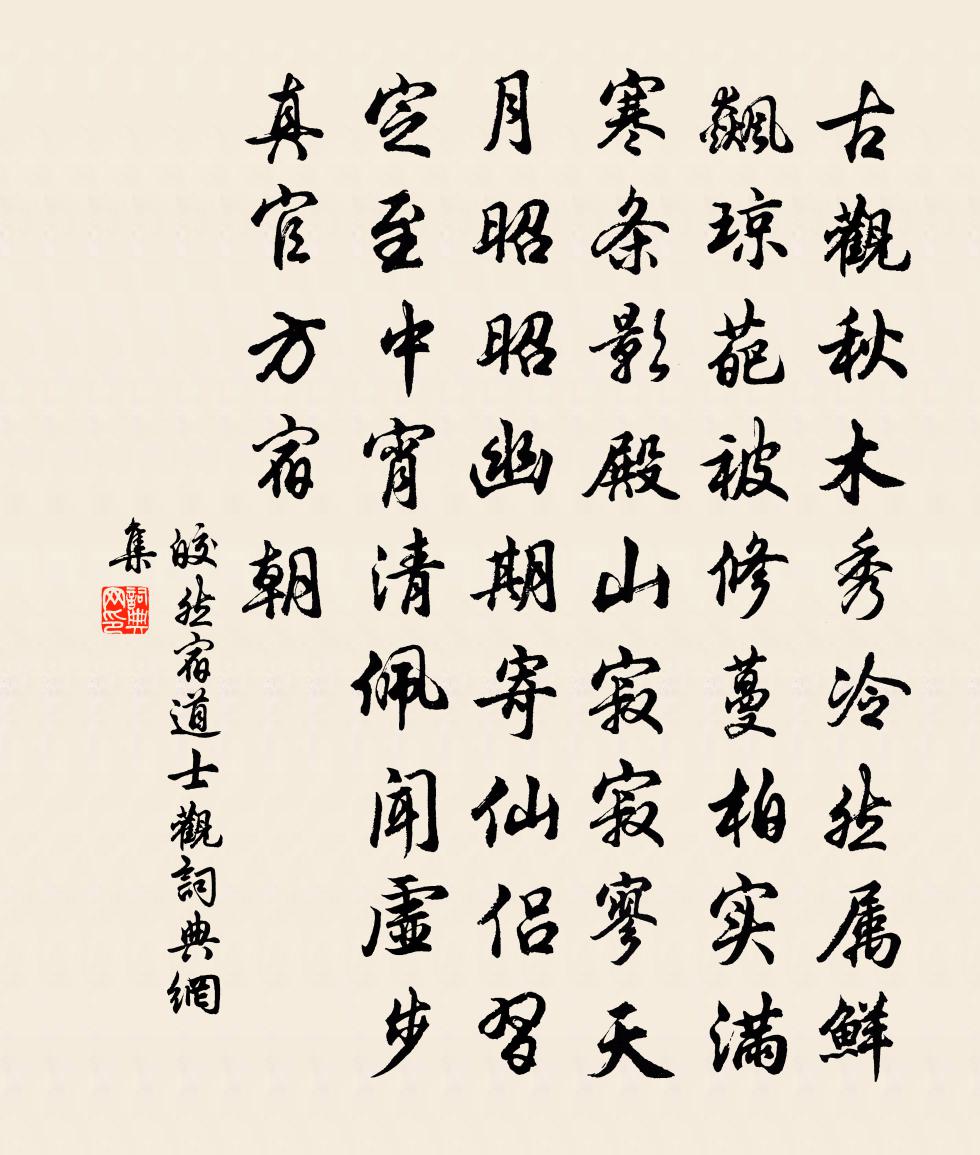 古觀秋木秀冷然属鮮
飙琼葩被修蔓柏实满
寒条影殿山寂寂寥天
月昭昭幽期寄仙侣習
定至中宵清佩闻虛步
真官方宿朝
皎然宿道士觀詞典網
集
詞典
网印